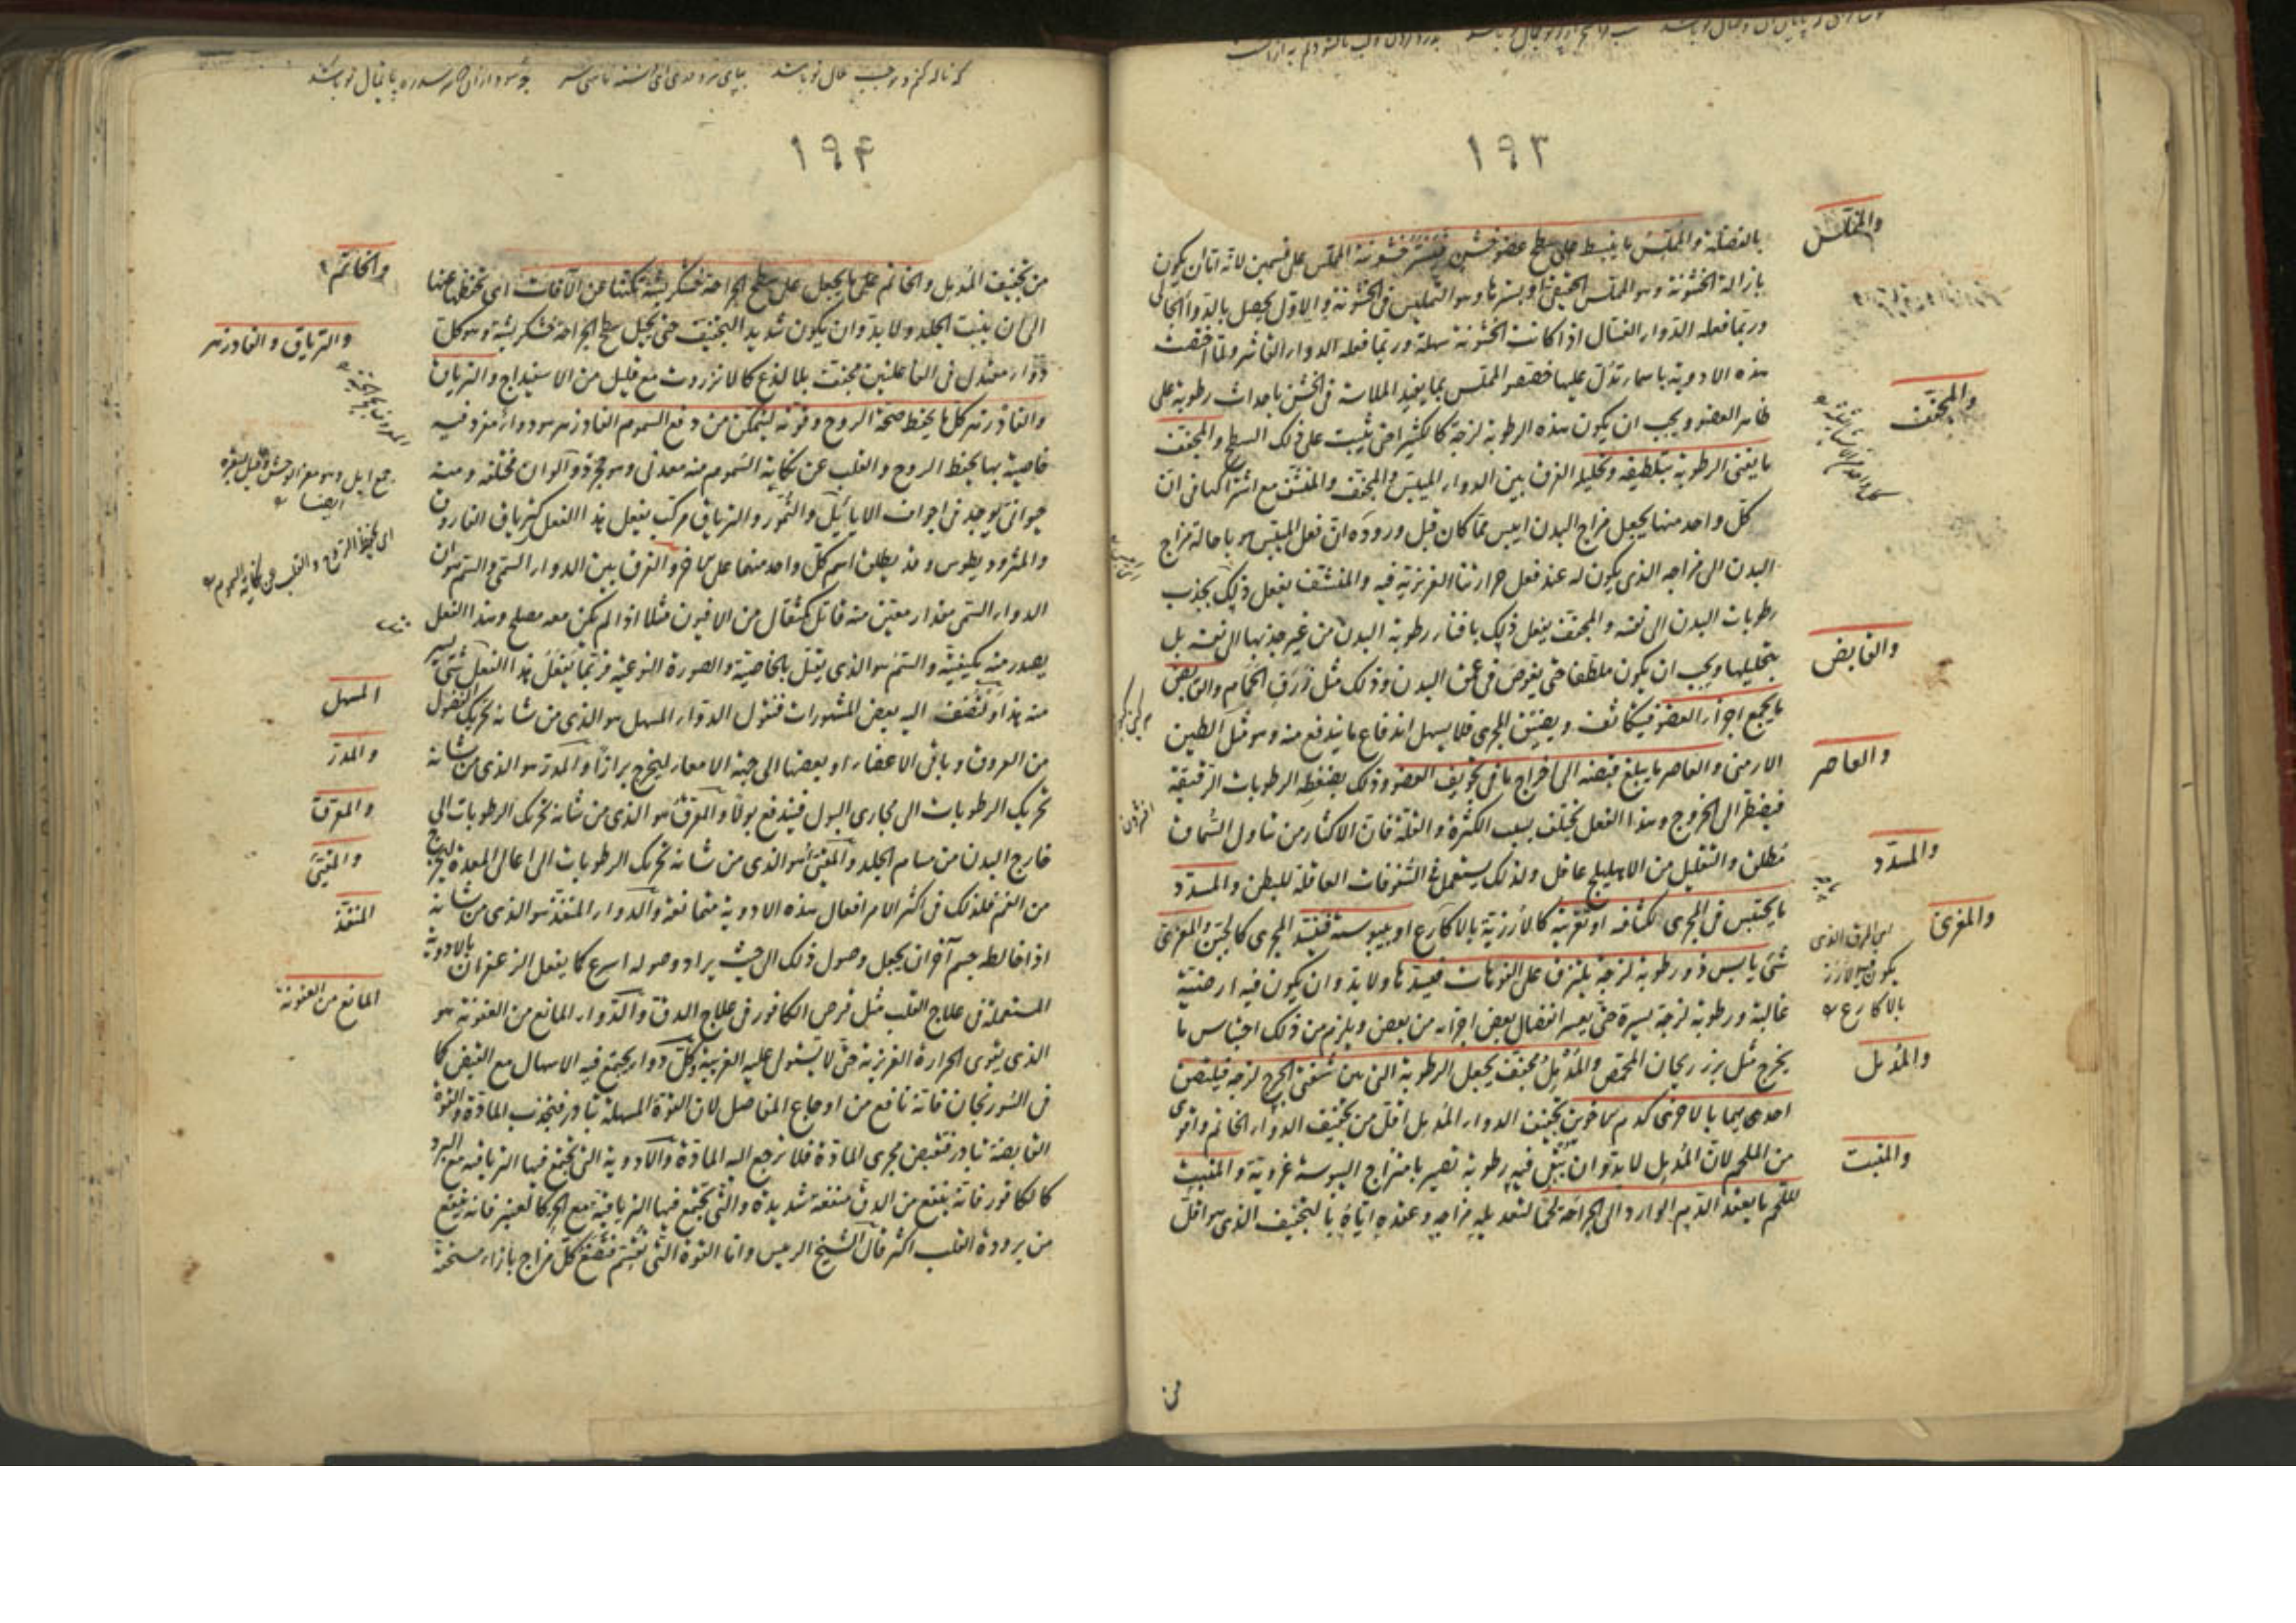 ١٩٣
بالفضلة والمملس ما ينبسط على سطح عضو خشن فيستر خشونته المملس على قسمين لانه اما ان يكون
بازالة الخشونة وهو المملس الحقيقى او بسترها وهو التمليس فى الخشونة والاول يحصل بالدواء الجالى
وربما فعله الدواء الغسال اذا كانت الخشونة سهلة وربما فعله الدواء القاشر ولما اختصت
هذه الادوية باسماء تدل عليها خصص المملس بما يفيد الملاسة فى الخشن باحداث رطوبة على
ظاهر العضو ويجب ان يكون هذه الرطوبة لزجة كالكثيرا حتى يثبت على ذلك السطح والمجفف
ما يفنى الرطوبة بتلطيفه وتحليله الفرق بين الدواء الميبس والمجفف والمنشف مع اشتراكها فى ان
كل واحد منها يجعل مزاج البدن ايبس مما كان قبل وروده ان فعل الميبس هو باحالة مزاج
البدن الى مزاجه الذى يكون له عند فعل حرارتنا الغريزية فيه والمنشف يفعل ذلك بجذب
رطوبات البدن الى نفسه والمجفف يفعل ذلك بافناء رطوبة البدن من غير جذبها الى نفسه بل
بتحليلها ويجب ان يكون ملطفا حتى يغوص فى عمق البدن وذلك مثل زرق الحمام والقابض
ما يجمع اجزاء العضو فيتكاثف ويضيق المجرى فلا يسهل اندفاع ما يندفع منه وهو مثل الطين
الارمنى والعاصر ما يبلغ قبضه الى اخراج ما فى تجويف العضو وذلك بضغطه الرطوبات الرقيقة
فيضطر الى الخروج وهذا الفعل يختلف بسبب الكثرة والقلة فان الاكثار من تناول السماق
مطلق والتقليل من الاهليلج عاقل ولذلك يستعمل فى السفوفات العاقلة للبطن والمسدد
ما يحتبس فى المجرى لكثافة او تغرية كالارزية بالاكارع او يبوسة فيسد المجرى كالجبن والمغرى
شئ يابس ذو رطوبة لزجة يلتزق على الفوهات فيسدها ولا بد وان يكون فيه ارضية
غالبة ورطوبة لزجة يسيرة حتى يعسر انفصال بعض اجزائه من بعض ويلزم من ذلك احتباس ما
يخرج مثل بزر ريحان المحمص والمدمل مجفف يجعل الرطوبة التى بين شفتى الجرح لزجة فيلتصق
احدى بهما بالاخرى كدم الاخوين تجفيف الدواء المدمل اقل من تجفيف الدواء الخاتم واقوى
من الملحم لان المدمل لا بد وان يبقى فيه رطوبة تصير بامتزاج اليبوسة غروية والمنبت
للحم ما يعقد الدم الوارد الى الجراحة لحما لتعديله مزاجه وعقده اياه بالتجفيف الذى هو اقل
من
والمملس
والمجفف
والقابض
والعاصر
والمسدد
والمغرى
اى المرق الذى
يكون فيه الارز
بالاكارع
والمدمل
والمنبت
١٩٤
من تجفيف المدمل والخاتم على ما يجعل على سطح الجراحة خشكريشة تكنها عن الآفات اى تحفظها عنها
الى ان ينبت الجلد ولا بد وان يكون شديد التجفيف حتى يجعل سطح الجراحة خشكريشة وهو كل
دواء معتدل فى الفاعلتين مجفف بلا لذع كالانزروت مع قليل من الاسفيداج والترياق
والفادزهر كل ما يحفظ صحة الروح وقوته ليتمكن من دفع السموم الفادزهر هو دواء مفرد فيه
خاصية بها يحفظ الروح والقلب عن نكاية السموم منه معدنى وهو حجر ذو الوان مختلفة ومنه
حيوانى يوجد فى اجواف الايائيل والنمور والترياق مركب يفعل هذا الفعل كترياق الفاروق
والمثروديطوس وقد يطلق اسم كل واحد منهما على الاخر والفرق بين الدواء السمى والسم هو ان
الدواء السمى مقدار معين منه قاتل كمثقال من الافيون مثلا اذا لم يكن معه مصلح وهذا الفعل
يصدر منه بكيفيته والسم هو الذى يقتل بالخاصية والصورة النوعية فربما يفعل هذا الفعل شئ يسير
منه هذا ولنضف اليه بعض المشهورات فنقول الدواء المسهل هو الذى من شانه تحريك الفضول
من العروق وباقى الاعضاء او بعضها الى جهة الامعاء ليخرج برازا والمدر هو الذى من شانه
تحريك الرطوبات الى مجارى البول فيندفع بولا والمعرق هو الذى من شانه تحريك الرطوبات الى
خارج البدن من مسام الجلد والمقيئ هو الذى من شانه تحريك الرطوبات الى اعالى المعدة ليخرج
من الفم فلذلك فى اكثر الامر افعال هذه الادوية متمانعة والدواء المنفذ هو الذى من شانه
اذا خالط جسم آخر ان يجعل وصول ذلك الى حيث يراد وصوله اسرع كما يفعل الزعفران بالادوية
المستعملة فى علاج القلب مثل قرص الكافور فى علاج الدق والدواء المانع من العفونة هو
الذى يقوى الحرارة الغريزية حتى لا يستولى عليه الغريبة وكل دواء يجتمع فيه الاسهال مع القبض كما
فى السورنجان فانه نافع من اوجاع المفاصل لان القوة المسهلة تبادر فتجذب المادة والقوة
القابضة تبادر فتقبض مجرى المادة فلا ترجع اليه المادة والادوية التى يجتمع فيها الترياقية مع البرد
كالكافور فانه ينفع من الدق منفعة شديدة والتى يجتمع فيها الترياقية مع الحر كالعنبر فانه ينفع
من برودة القلب اكثر قال الشيخ الرئيس واما القوة التى تقسم فتضع كل مزاج بازاء مستحقه
والخاتم
والترياق والفادزهر
جمع ايل وهو معز الوحش وقيل لبقره
ايضا
اى يحفظ الروح والقلب عن نكاية السموم
المسهل
والمدر
والمعرق
والمقيئ
المنفذ
المانع من العفونة